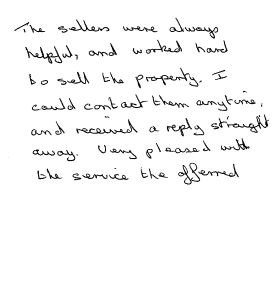 The sellers were always
helpful, and worked hard
to sell the property. I
could contact them anytime,
and received a reply straight
away. Very pleased with
the service the offerred